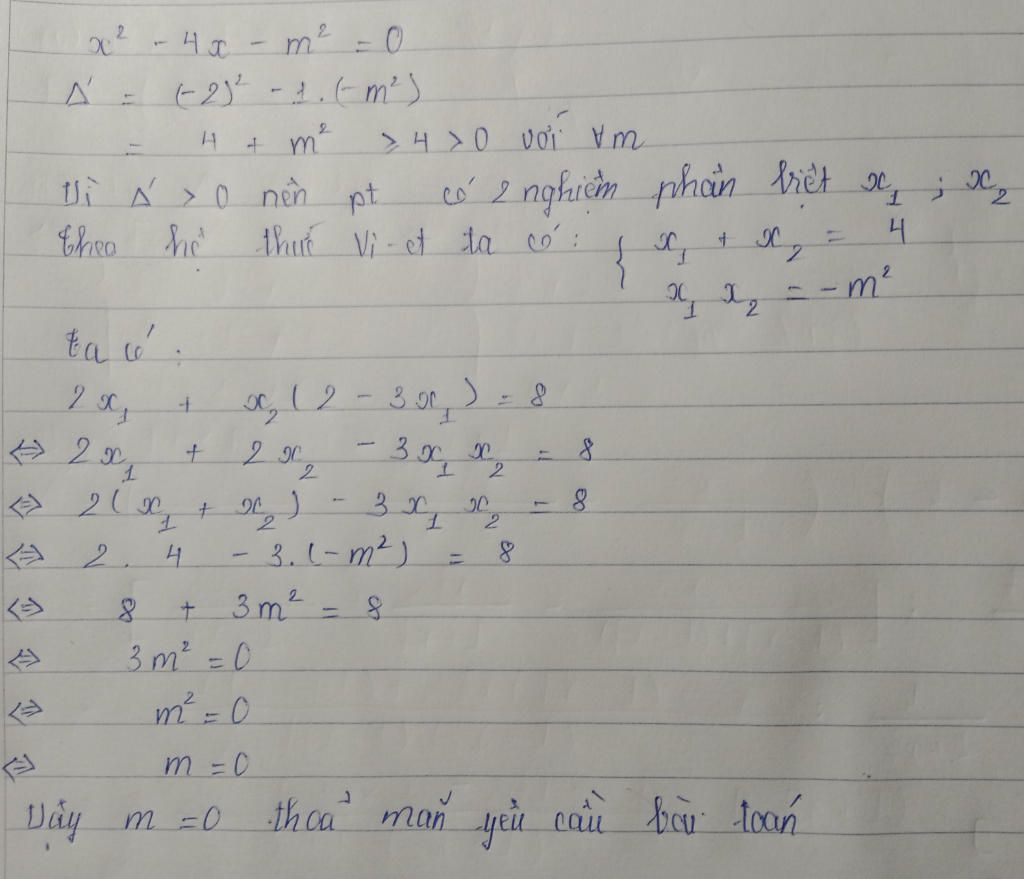 x² - 4x - m² = 0
Δ' = (-2)² - 1.(-m²)
= 4 + m² ≥ 4 > 0 với ∀m
Vì Δ' > 0 nên pt có 2 nghiệm phân biệt x₁ ; x₂
theo hệ thức Vi-et ta có: { x₁ + x₂ = 4
x₁ x₂ = -m²
ta có :
2x₁ + x₂(2 - 3x₁) = 8
⇔ 2x₁ + 2x₂ - 3x₁ x₂ = 8
⇔ 2(x₁ + x₂) - 3x₁ x₂ = 8
⇔ 2 . 4 - 3.(-m²) = 8
⇔ 8 + 3m² = 8
⇔ 3m² = 0
⇔ m² = 0
⇔ m = 0
Vậy m = 0 thoả mãn yêu cầu bài toán